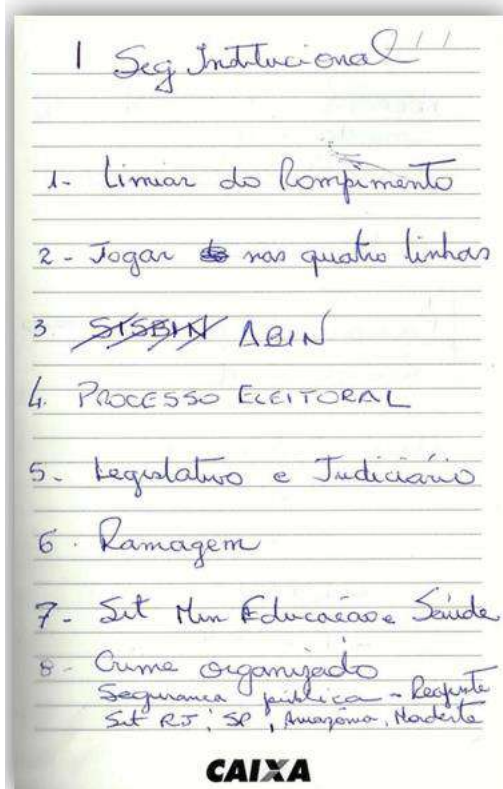 1 Seg Institucional
1- Limiar do Rompimento
2- Jogar nas quatro linhas
3 SISBIN ABIN
4. PROCESSO ELEITORAL
5- Legislativo e Judiciário
6. Ramagem
7- Sit Min Educação e Saúde
8- Crime organizado
Segurança pública -
Sit RJ, SP, Amazônia, Nordeste
CAIXA